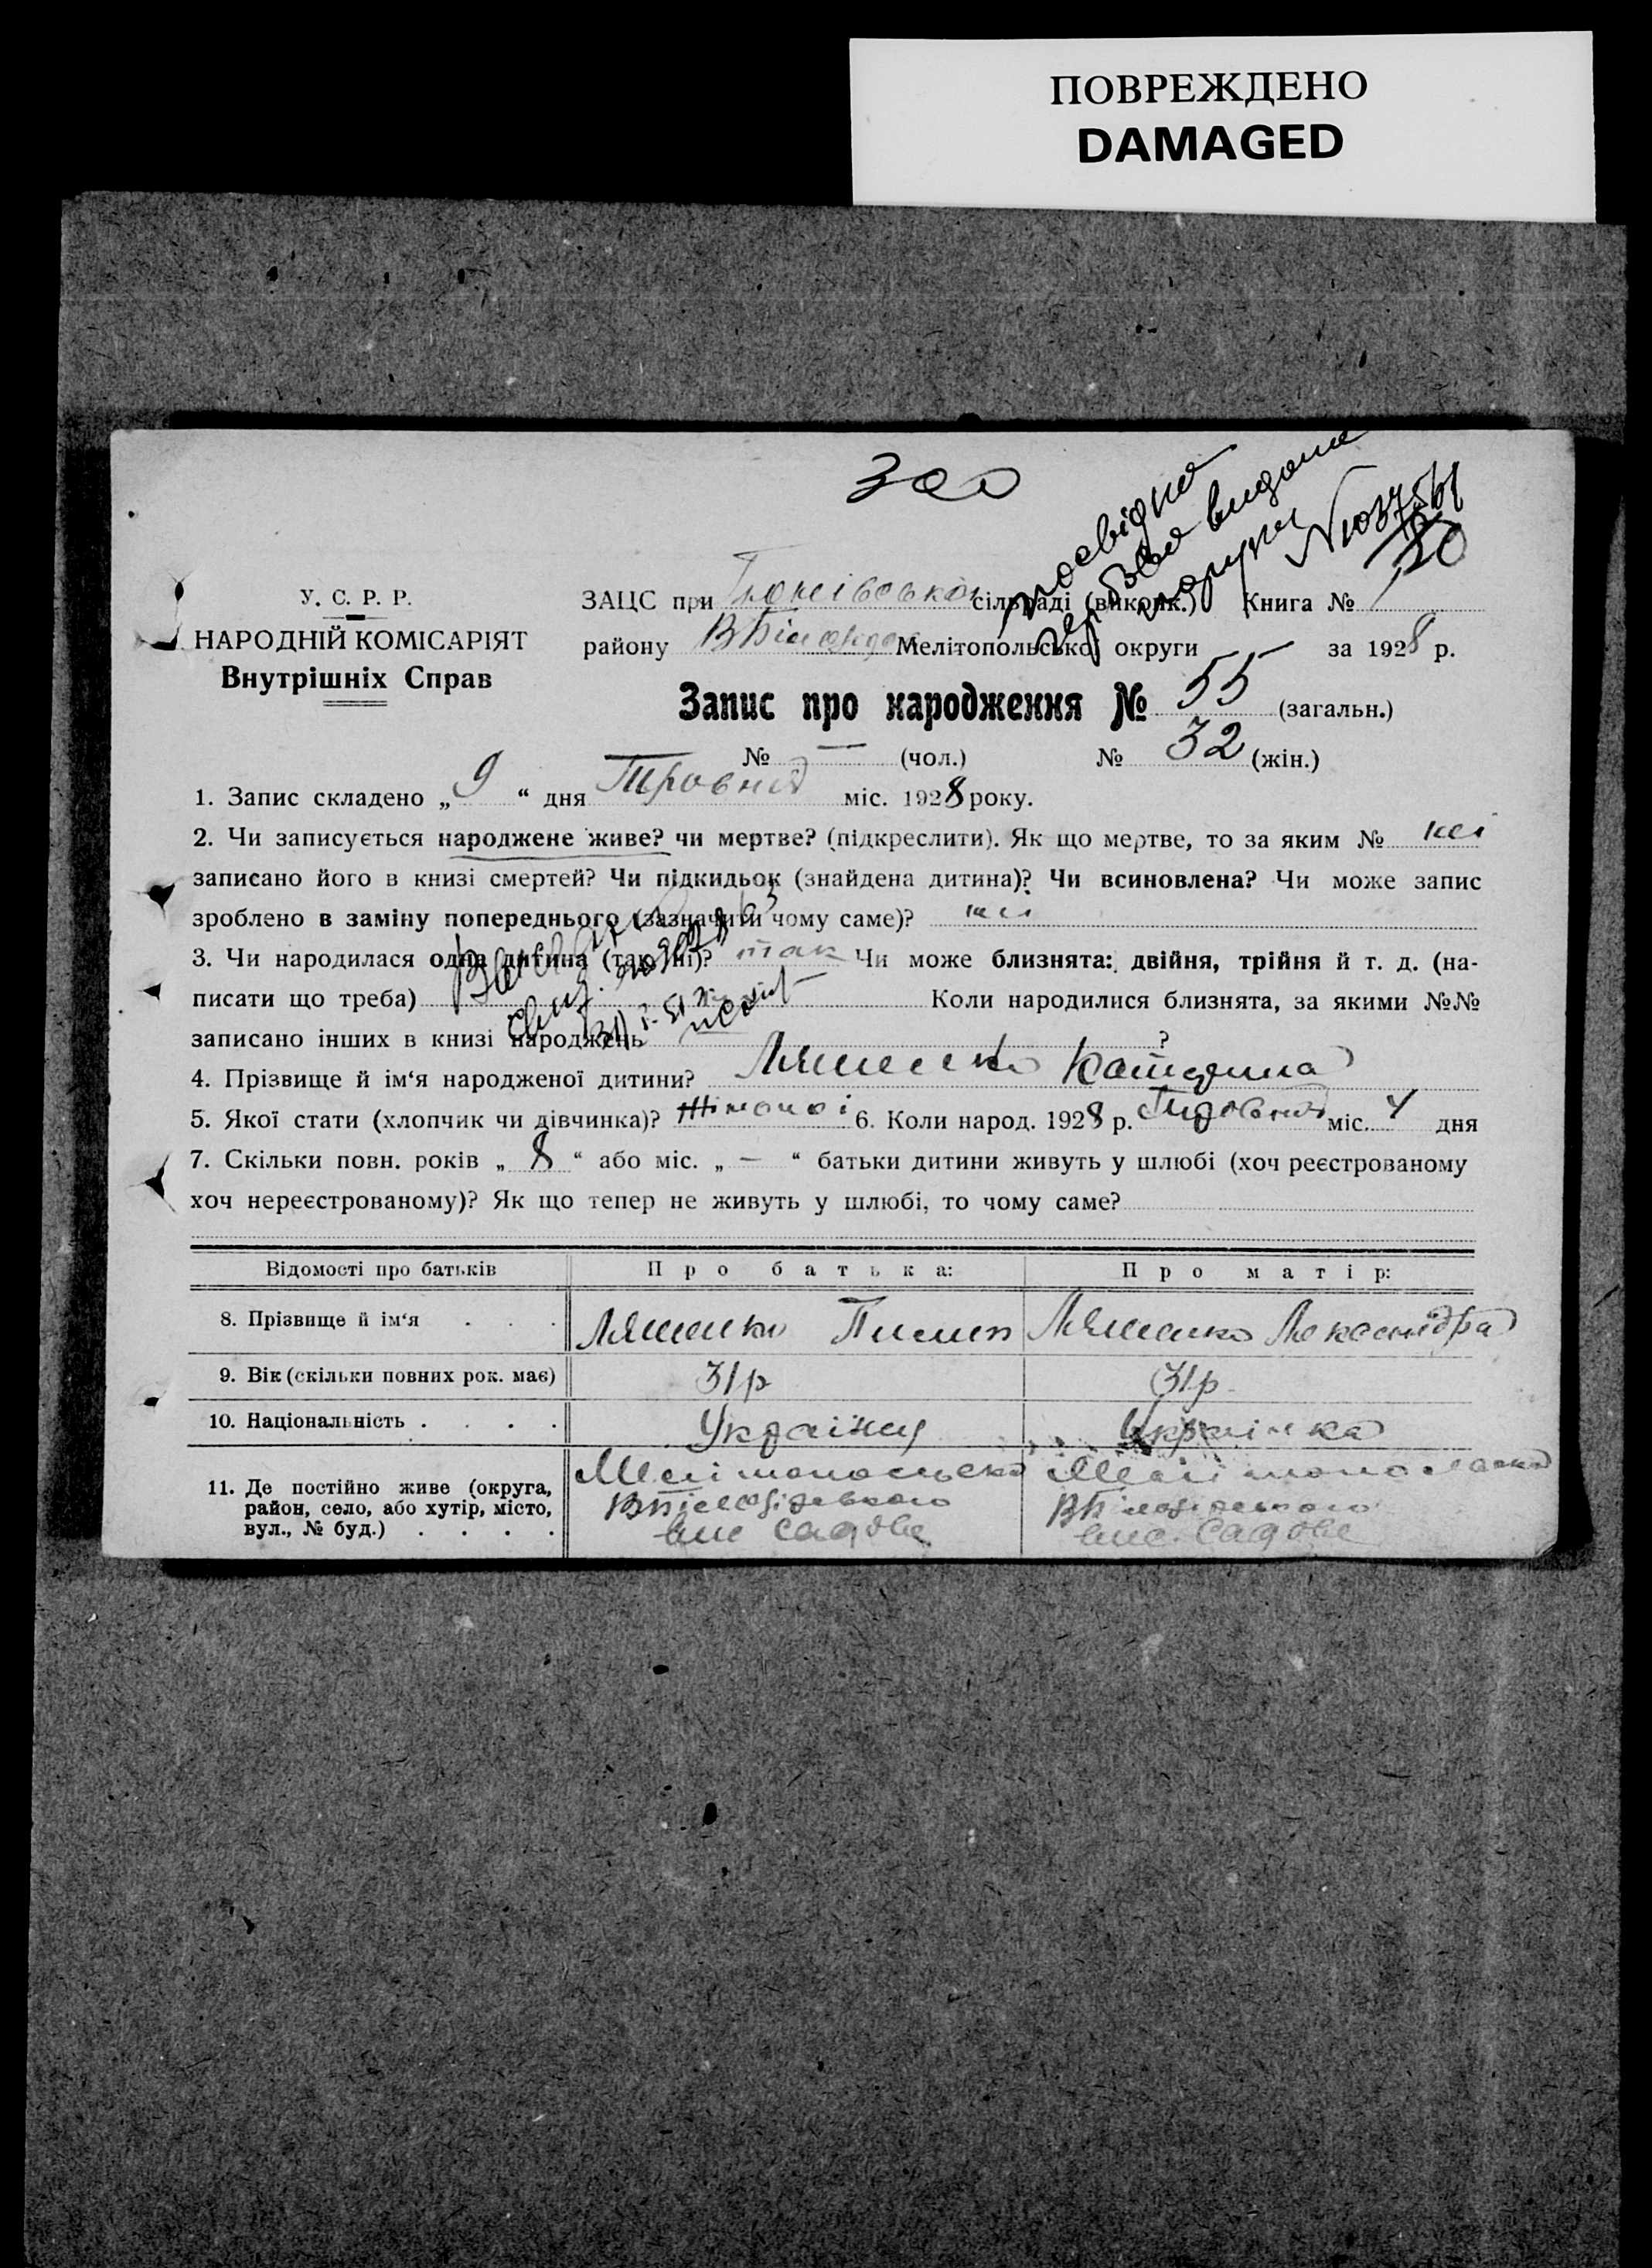 ПОВРЕЖДЕНО
DAMAGED
300
посвідка
видана
У. С. Р. Р.
НАРОДНІЙ КОМІСАРІЯТ
Внутрішніх Справ
ЗАЦС при сільраді (виконк.) Книга №
району Мелітопольської округи за 1928 р.
Запис про народження № 55 (загальн.)
№ — (чол.) № 32 (жін.)
1. Запис складено „ 9 “ дня Травня міс. 1928 року.
2. Чи записується народжене живе? чи мертве? (підкреслити). Як що мертве, то за яким № ні
записано його в книзі смертей? Чи підкидьок (знайдена дитина)? Чи всиновлена? Чи може запис
зроблено в заміну попереднього (зазначити чому саме)? ні
3. Чи народилася одна дитина (так, ні)? так Чи може близнята: двійня, трійня й т. д. (на-
писати що треба) Коли народилися близнята, за якими №№
записано інших в книзі народжень ?
4. Прізвище й ім‘я народженої дитини? Ляшенко Катерина
5. Якої стати (хлопчик чи дівчинка)? Жіночої 6. Коли народ. 1928 р. Травня міс. 4 дня
7. Скільки повн. років „ 8 “ або міс. „ — “ батьки дитини живуть у шлюбі (хоч реєстрованому
хоч нереєстрованому)? Як що тепер не живуть у шлюбі, то чому саме?
Відомості про батьків Про батька: Про матір:
8. Прізвище й ім‘я . . . Ляшенко Пилип Ляшенко Лександра
9. Вік (скільки повних рок. має) 31 р 31 р.
10. Національність . . . . Українец Українка
11. Де постійно живе (округа, Мелітопольська Мелітопольська
район, село, або хутір, місто,
вул., № буд.) . . . . Садове Садове